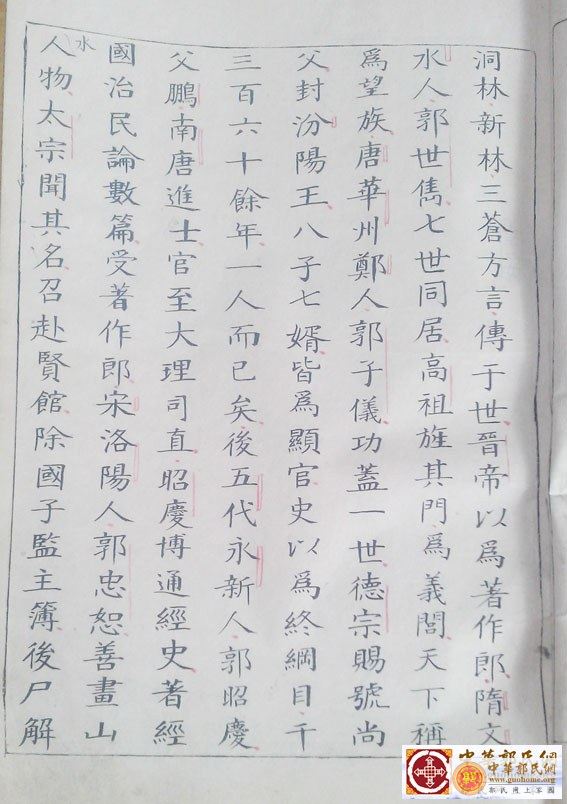 洞林新林三蒼方言傳于世晉帝以爲著作郎隋文
水人郭世雋七世同居高祖旌其門爲義閭天下稱
爲望族唐華州鄭人郭子儀功蓋一世德宗賜號尚
父封汾陽王八子七婿皆爲顯官史以爲終綱目千
三百六十餘年一人而已矣後五代永新人郭昭慶
父鵬南唐進士官至大理司直昭慶博通經史著經
國治民論數篇受著作郎宋洛陽人郭忠恕善畫山
水
人物太宗聞其名召赴賢館除國子監主簿後尸解
中華郭氏網
中華郭氏網
www.guohome.org
郭氏網上家園